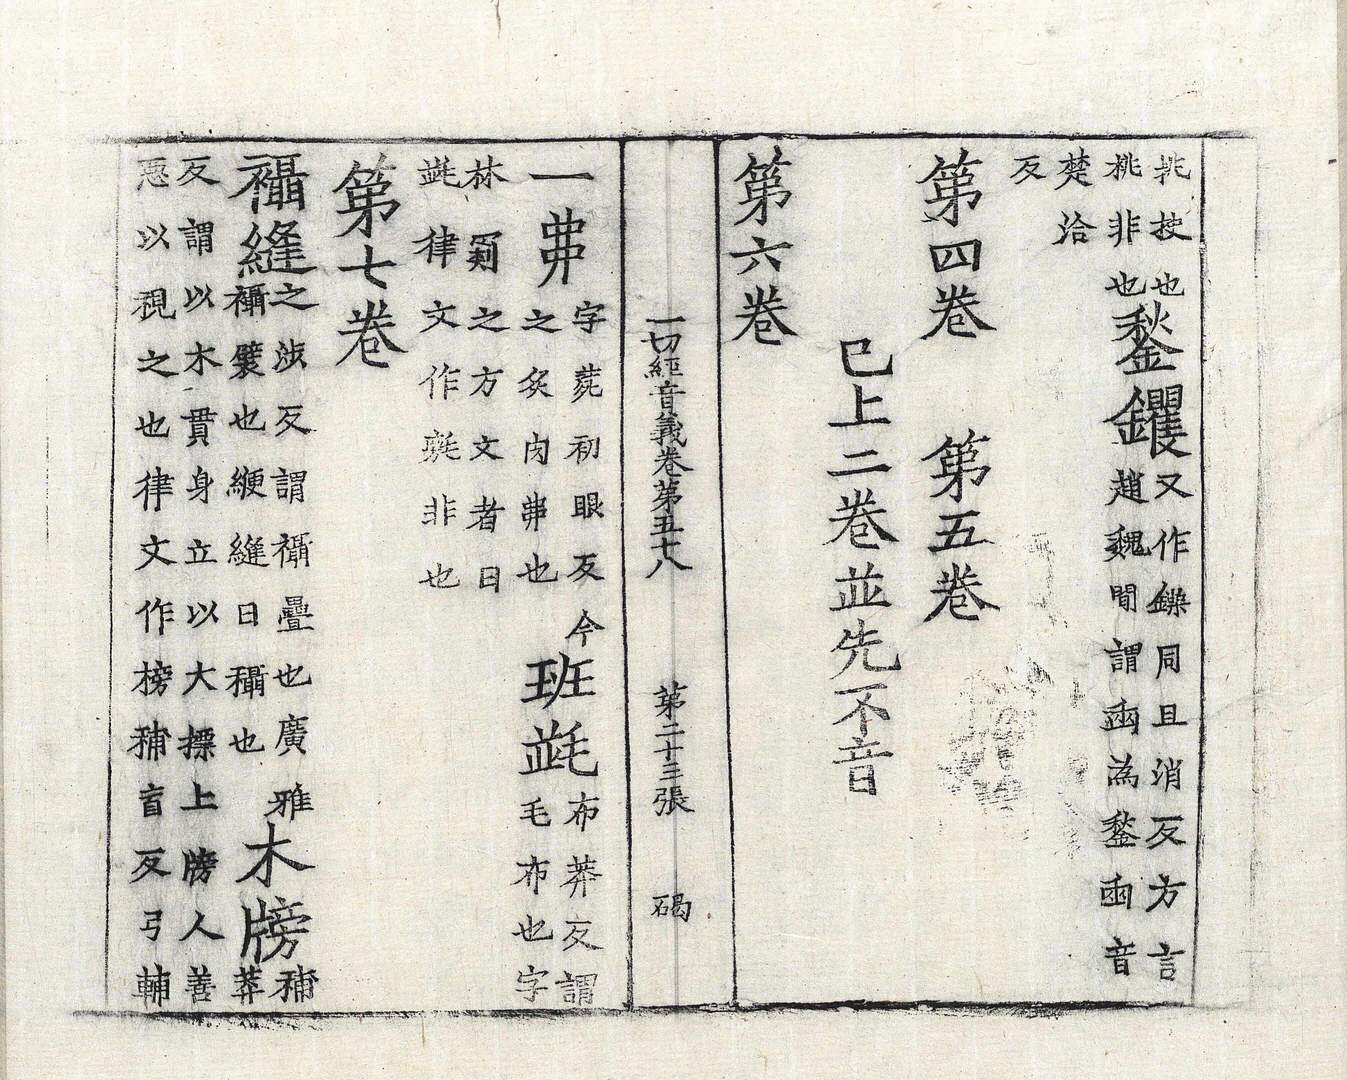 挑抰也鍫钁又作鐰同且消反方言
桃非也趙魏間謂臿為鍫臿音
楚洽
反
第四卷　第五卷
已上二卷並先不音
第六卷
一切經音義卷第五十八　第二十三張　碣
一丳字苑初眼反今班㲎布莽反謂
之炙肉丳也毛布也字
林罽之方文者曰
㲎律文作㲎非也
第七卷
襵縫之涉反謂襵疊也廣雅木牓補
襵襞也緶縫曰襵也莽
反謂以木貫身立以大摽上牓人善
惡以視之也律文作榜補盲反弓輔